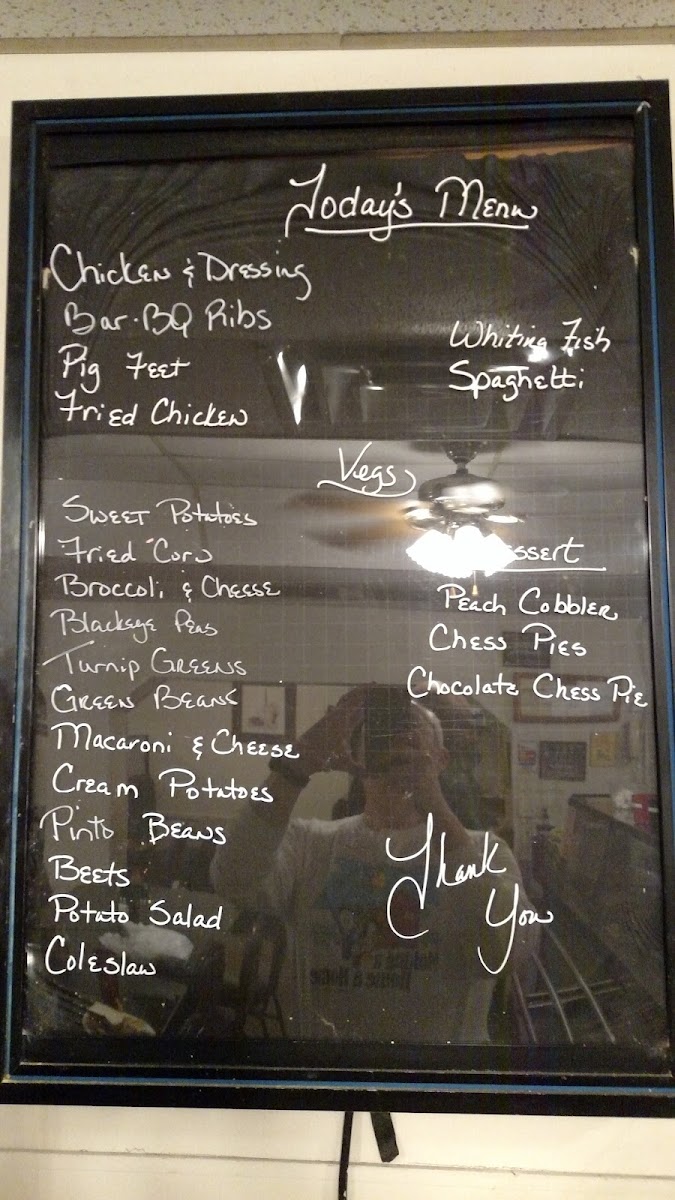 Today's Menu
Chicken & Dressing
Bar-BQ Ribs
Pig Feet
Fried Chicken
Whiting Fish
Spaghetti
Vegs
Sweet Potatoes
Fried Corn
Broccoli & Cheese
Blackeye Peas
Turnip Greens
Green Beans
Macaroni & Cheese
Cream Potatoes
Pinto Beans
Beets
Potato Salad
Coleslaw
ssert
Peach Cobbler
Chess Pies
Chocolate Chess Pie
Thank
You